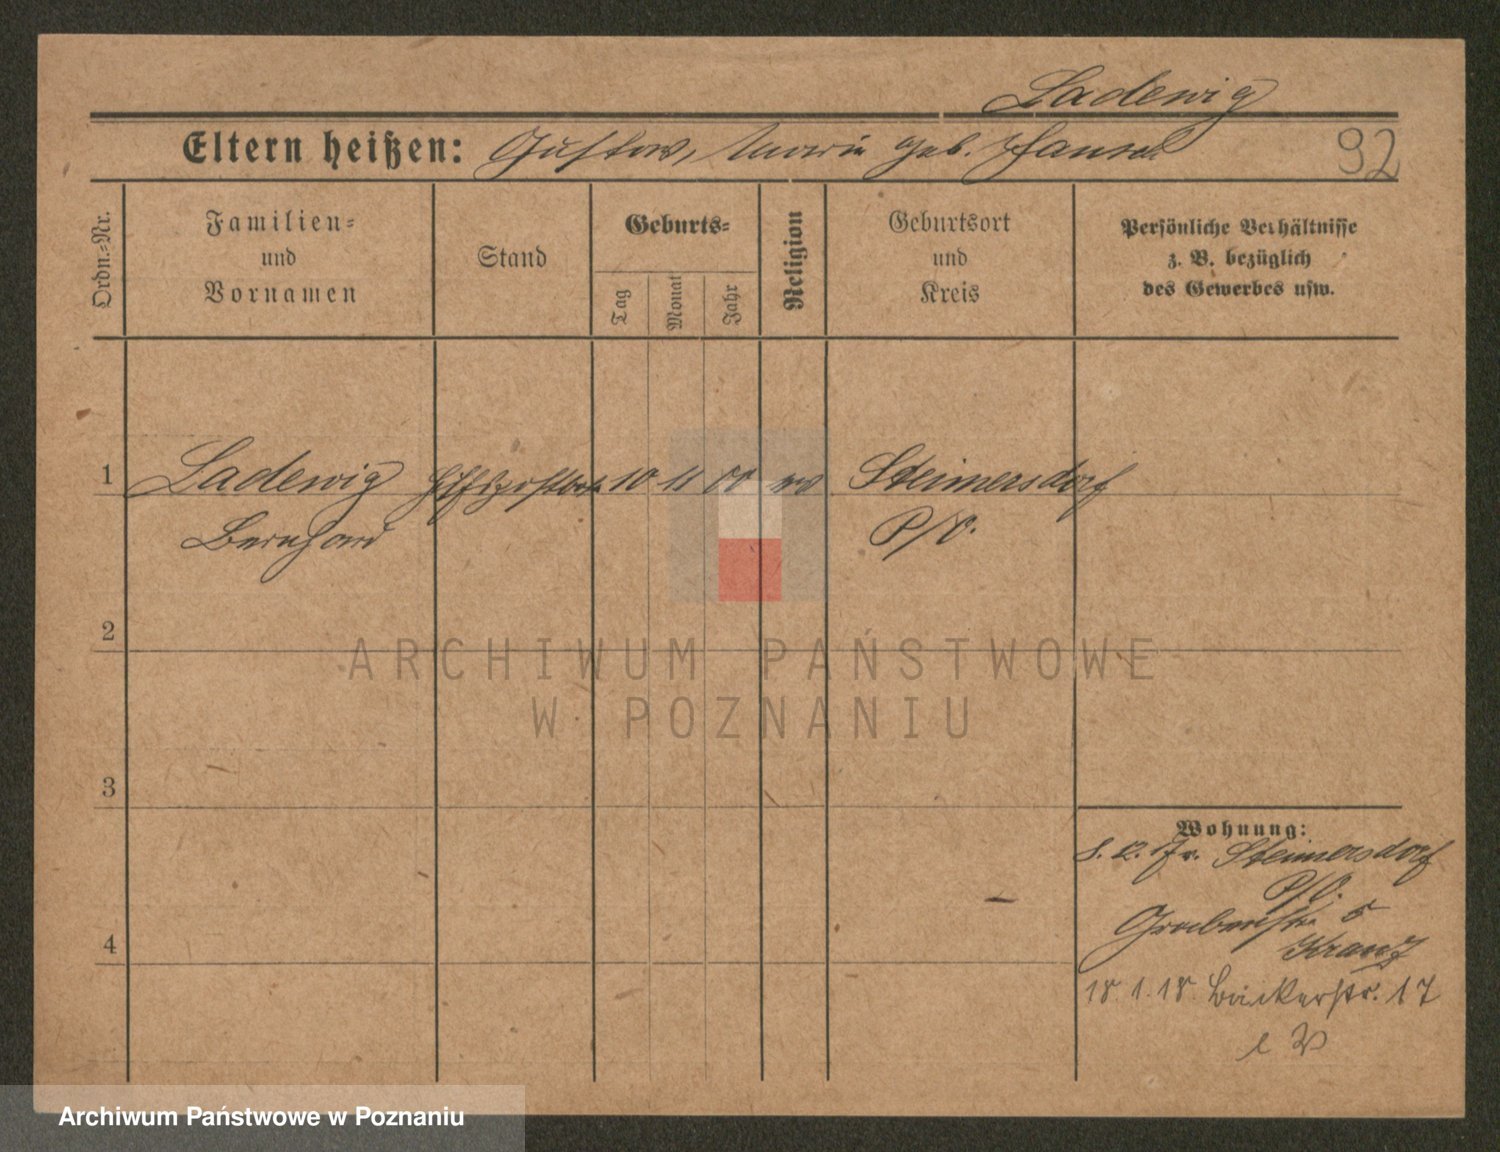 Ladewig
Eltern heißen: Gustav, Marie geb.
92
Ordn.=Nr.
Familien=
und
Vornamen
Stand
Geburts=
Tag
Monat
Jahr
Religion
Geburtsort
und
Kreis
Persönliche Verhältnisse
z. B. bezüglich
des Gewerbes usw.
1
Ladewig
10 11 00
Steimersdorf
Bernhard
P/O.
2
ARCHIWUM PAŃSTWOWE
W POZNANIU
3
Wohnung:
Steimersdorf
P/O.
Grabenstr. 5
Kranz
18.1.18. Bäckerstr. 17
4
Archiwum Państwowe w Poznaniu